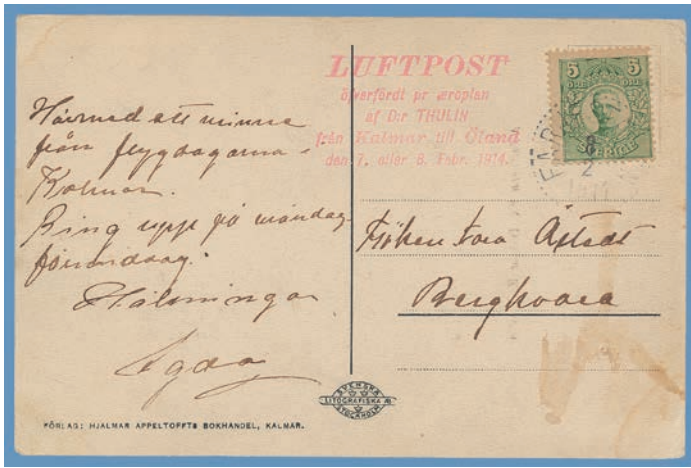 LUFTPOST
öfverfördt pr æroplan
af D:r THULIN
från Kalmar till Öland
den 7. eller 8. Febr. 1914.
5 5
ÖRE ÖRE
SVERIGE
8
2
Härmed ett minne
från flygdagarna i
Kalmar.
Ring upp på måndag
förmiddag.
Hälsningar
Fröken
Bergkvara
SVENSKA
LITOGRAFISKA AB
STOCKHOLM
FÖRLAG: HJALMAR APPELTOFFTS BOKHANDEL, KALMAR.